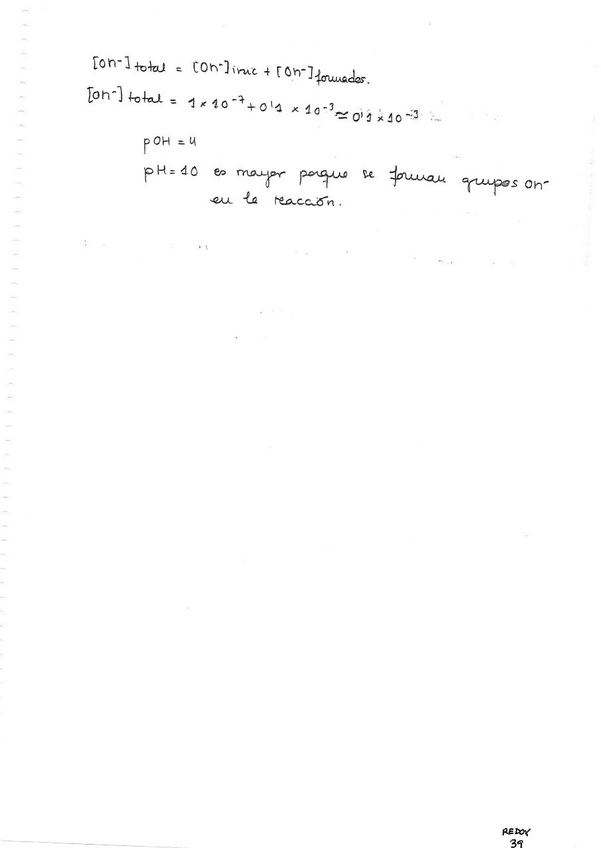 [OH-] total = [OH-] inic + [OH-] formados.
[OH-] total = 1 x 10-7 + 0'1 x 10-3 ≃ 0'1 x 10-3
pOH = 4
pH = 10 es mayor porque se forman grupos OH-
en la reacción.
REDOX
39